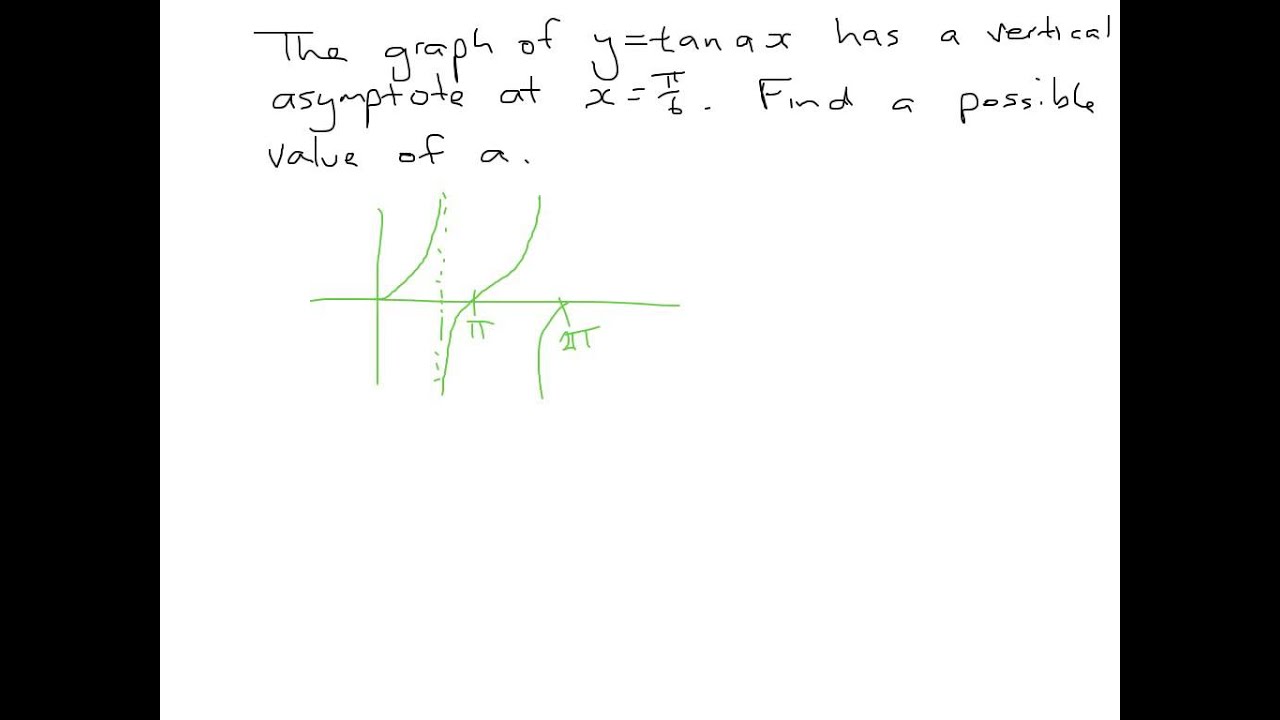 The graph of y=tan ax has a vertical
asymptote at x=π/6. Find a possible
value of a.
π
2π